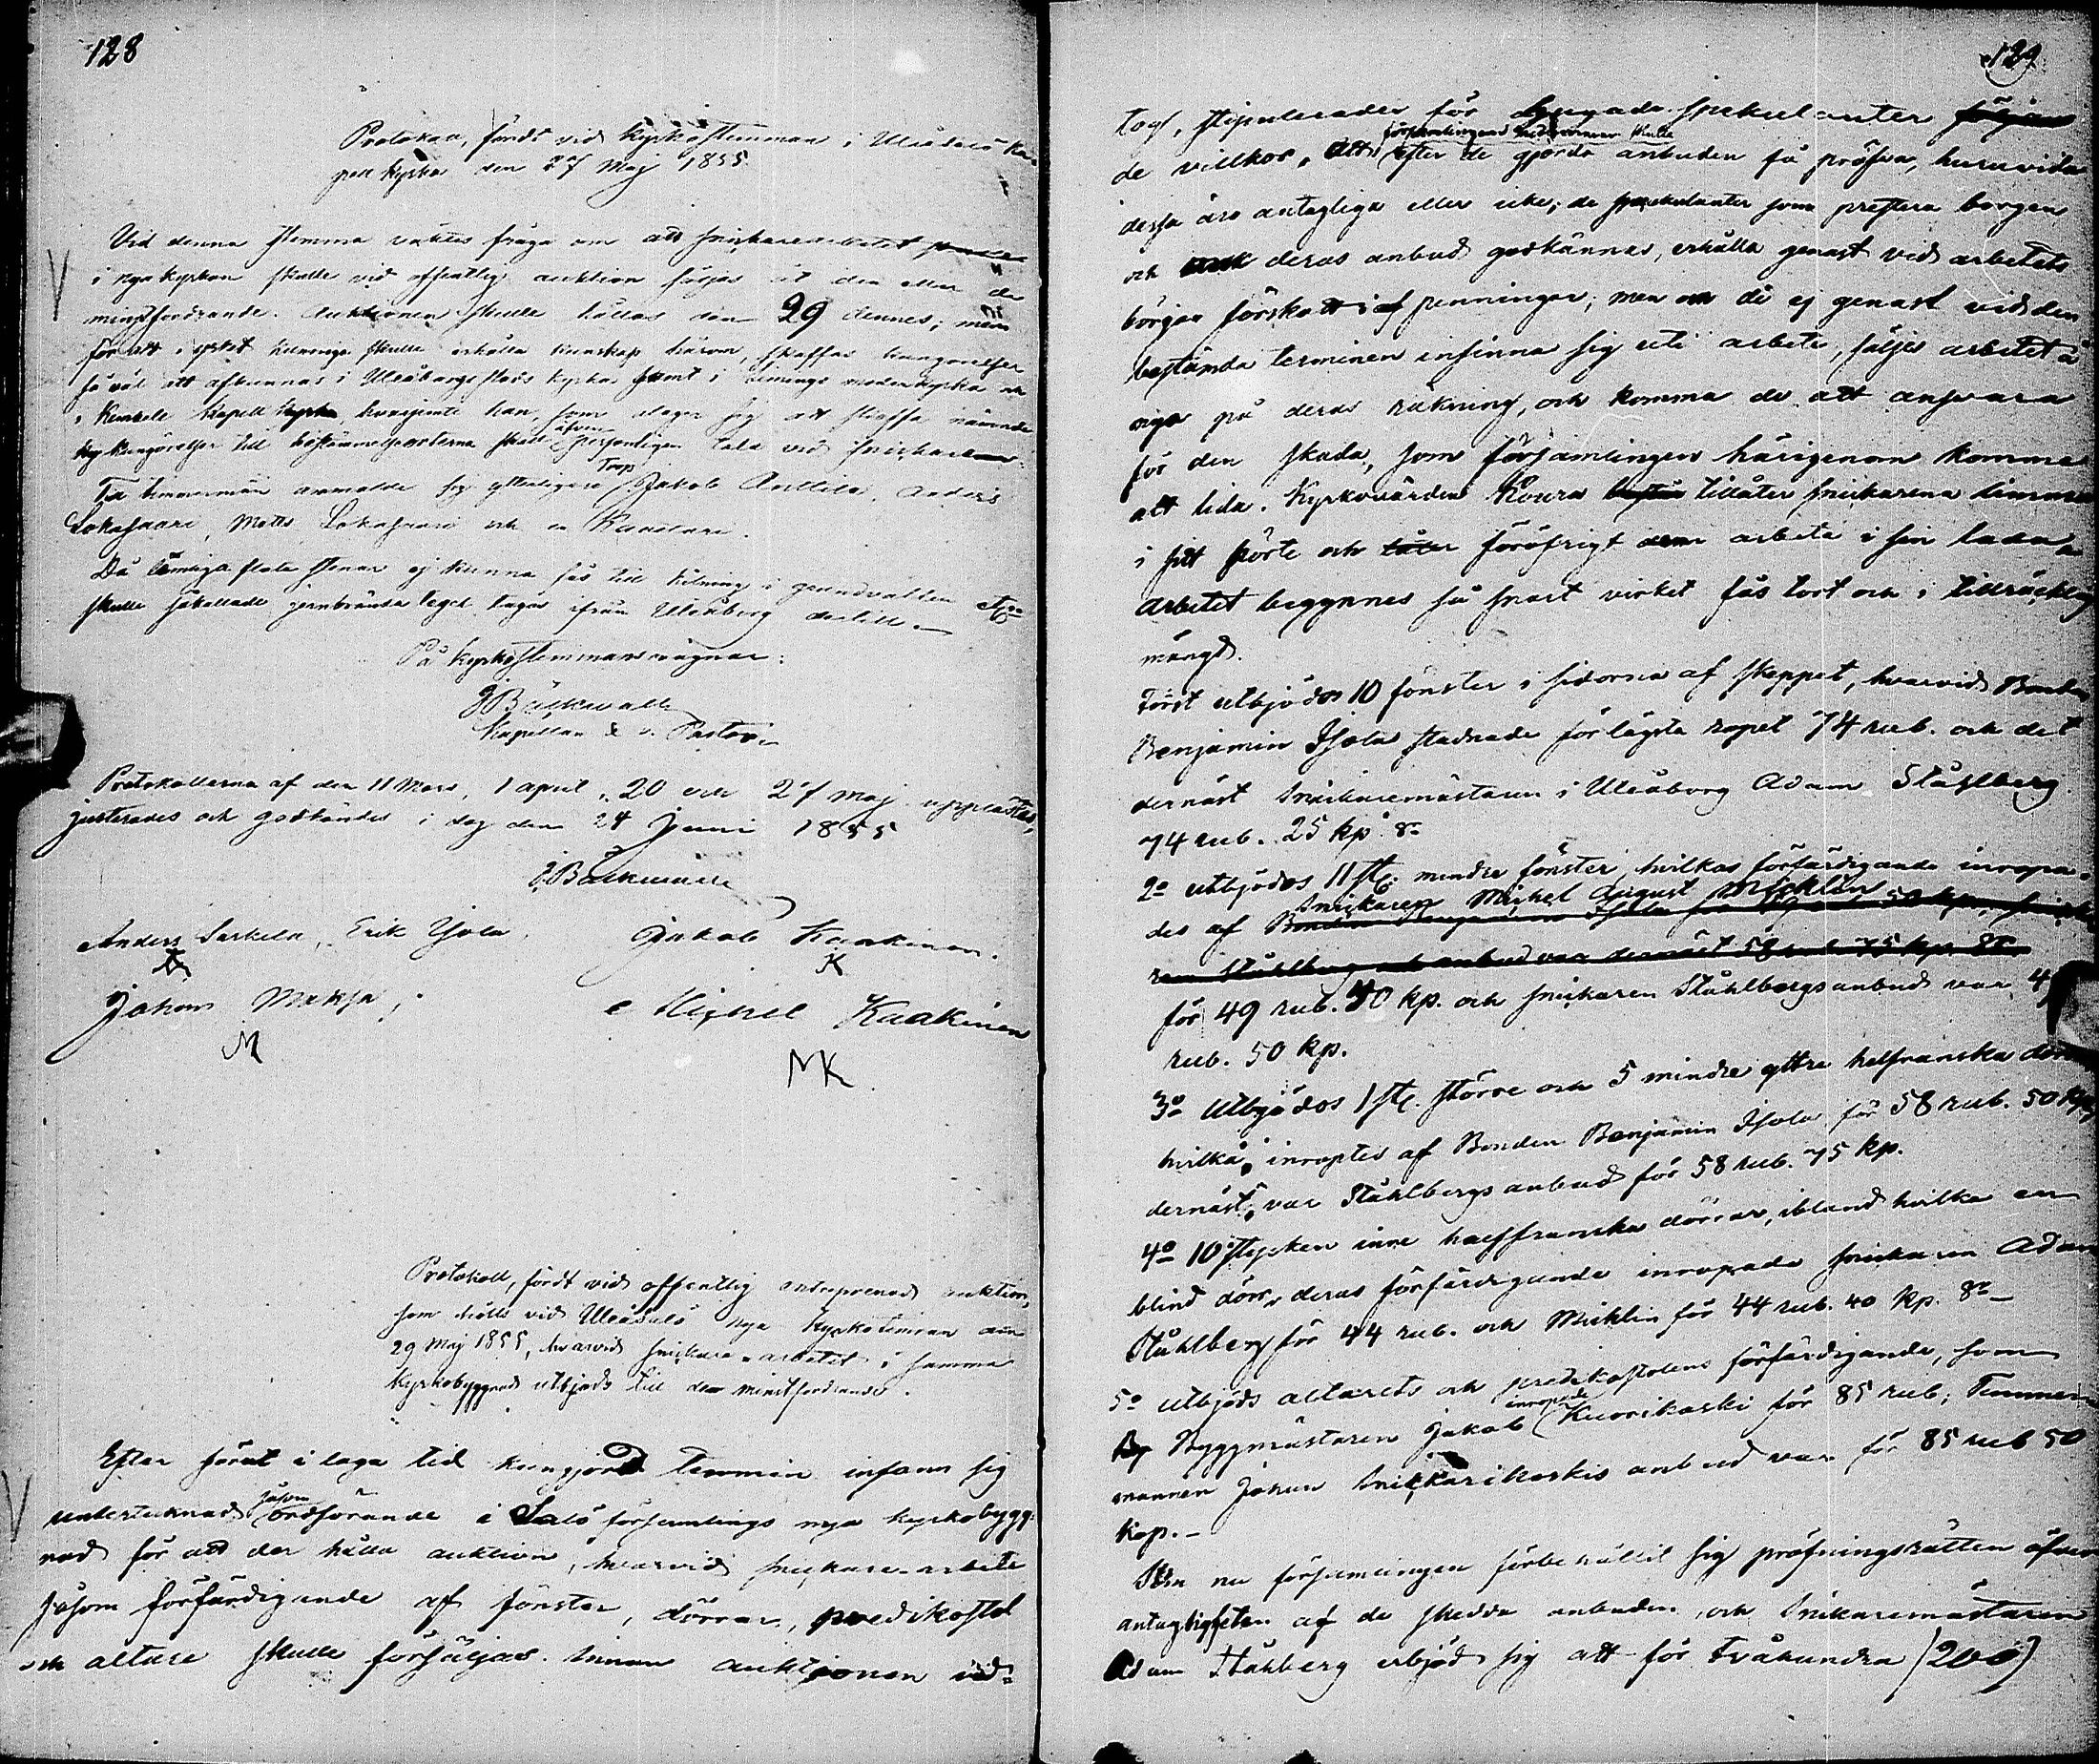 128
Protokoll, fördt vid Kyrkostemman i Uleåsalo Ka-
pell Kyrka den 27 Maj 1855
Vid denna stemma väktes fråga om att snickarearbetet
i nya kyrkan skulle vid offentlig auktion säljas åt den eller de
minstfordrande. Auktionen skulle hållas den 29 dennes; men
för att i yrket kunnige skulle erhålla kunskap härom, skaffas kungörelser
så väl att afkunnas i Uleåborgs stads kyrka samt i Limingo moderkyrka och
i Kempele Kapell kyrka hvarjemte han, som åtager sig att skaffa nämnde
kungörelser till bestämmelseorterna skall äfven personligen tala vid snickarena
Till timmermän anmälde sig ytterligare Torp. Jakob Anttila, Anders
Lokasaari, Matts Lokasaari och
Då lämpliga flata stenar ej kunna fås till kilning i grundvalten
skulle såkallade jernbrända tegel tagas ifrån Uleåborg dertill.
På Kyrkostemmans vägnar:
J Bäckvall
Kapellan & v. Pastor.
Protokollerna af den 11 Mars, 1 april, 20 och 27 maj upplästes,
justerades och godkändes i dag den 24 Juni 1855
J. Bäckvall
Anders Sarkela, Erik Isola. Jakob Kaakinen.
K
Johan Maksa, Michel Kaakinen
M MK
Protokoll, fördt vid offentlig entreprenad auktion,
som hölls vid Uleåsalo nya Kyrkotimran den
29 Maj 1855, hvarvid snickare-arbetet i samma
Kyrkobyggnad utbjöds till den minstfordrande.
Efter förut i laga tid kungjord termin infann sig
undertecknad såsom ordförande i Salo församlings nya kyrkobygg-
nad för att der hålla auktion, hvarvid snickare-arbete
såsom förfärdigande af fönster, dörrar, predikostol
och altare skulle försäljas. Innan auktionen vid-
129
tog, stipulerades för hugade spekulanter följan
de villkor, att församlingens ledamöter skulle efter de gjorda anbuden få pröfva, huruvida
dessa äro antagliga eller icke; de spekulanter som prestera borgen
och deras anbud godkännes, erhålla genast vid arbetets
början förskott i penningar; men om de ej genast vid den
bestämda terminen infinna sig uti arbete, säljes arbetet å
nyo på deras räkning, och komma de att ansvara
för den skada, som församlingen härigenom komme
att lida. Kyrkovärden Koura tillåter snickarena
i sitt pörte och låter föröfrigt dem arbeta i sin lada
Arbetet begynnes så snart virket fås tort och i tillräcklig
mängd.
Först utbjödos 10 fönster i sidorna af skeppet, hvarvid Bonden
Benjamin Isola stadnade för lägsta ropet 74 rub. och det
dernäst Snickaremästaren i Uleåborg Adam Ståhlberg
74 rub. 25 kp Sr
2o utbjödos 11 st. mindre fönster, hvilkas förfärdigande inropa-
des af Snickaren Michel August Micklin Bonden Benjamin Isola
Ståhlberg anbud var dernäst 58 rub 75 kp. Sr.
för 49 rub. 40 kp. och snickaren Ståhlbergs anbud var 49
rub. 50 kp.
3o Utbjödos 1 st. större och 5 mindre yttre halfranska dörrar
hvilka inroptes af Bonden Benjamin Isola för 58 rub. 50 kp,
dernäst var Ståhlbergs anbud för 58 rub. 75 kp.
4o 10 stycken inre halffranska dörrar, ibland hvilka en
blind dörr, deras förfärdigande inropade snickaren Adam
Ståhlberg för 44 rub. och Micklin för 44 rub. 40 kp. Sr
5o Utbjöds altarets och predikostolens förfärdigande, som
Byggmästaren Jakob inropade Kuorikoski för 85 rub; Timmer-
mannen Johan Kuorikoskis anbud var för 85 rub 50
kop.
Som nu församlingen förbehållit sig pröfningsrätten öfver
antagligheten af de skedda anbuden, och Snickaremästaren
Adam Ståhlberg erbjöd sig att för Tvåhundra (200)